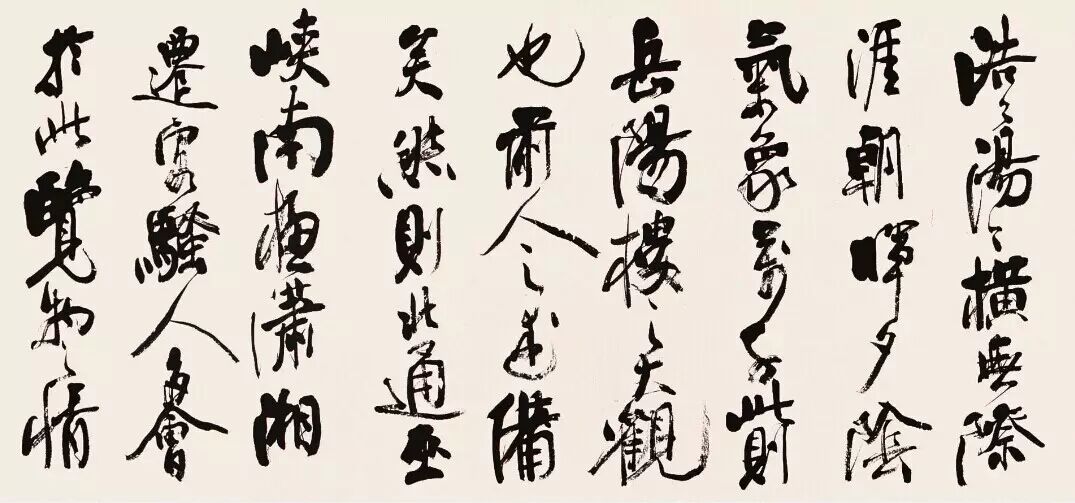 浩〻湯〻橫無際
涯朝暉夕陰
氣象萬千此則
岳陽樓之大觀
也前人之述備
矣然則北通巫
峽南極瀟湘
遷客騷人多會
於此覽物之情